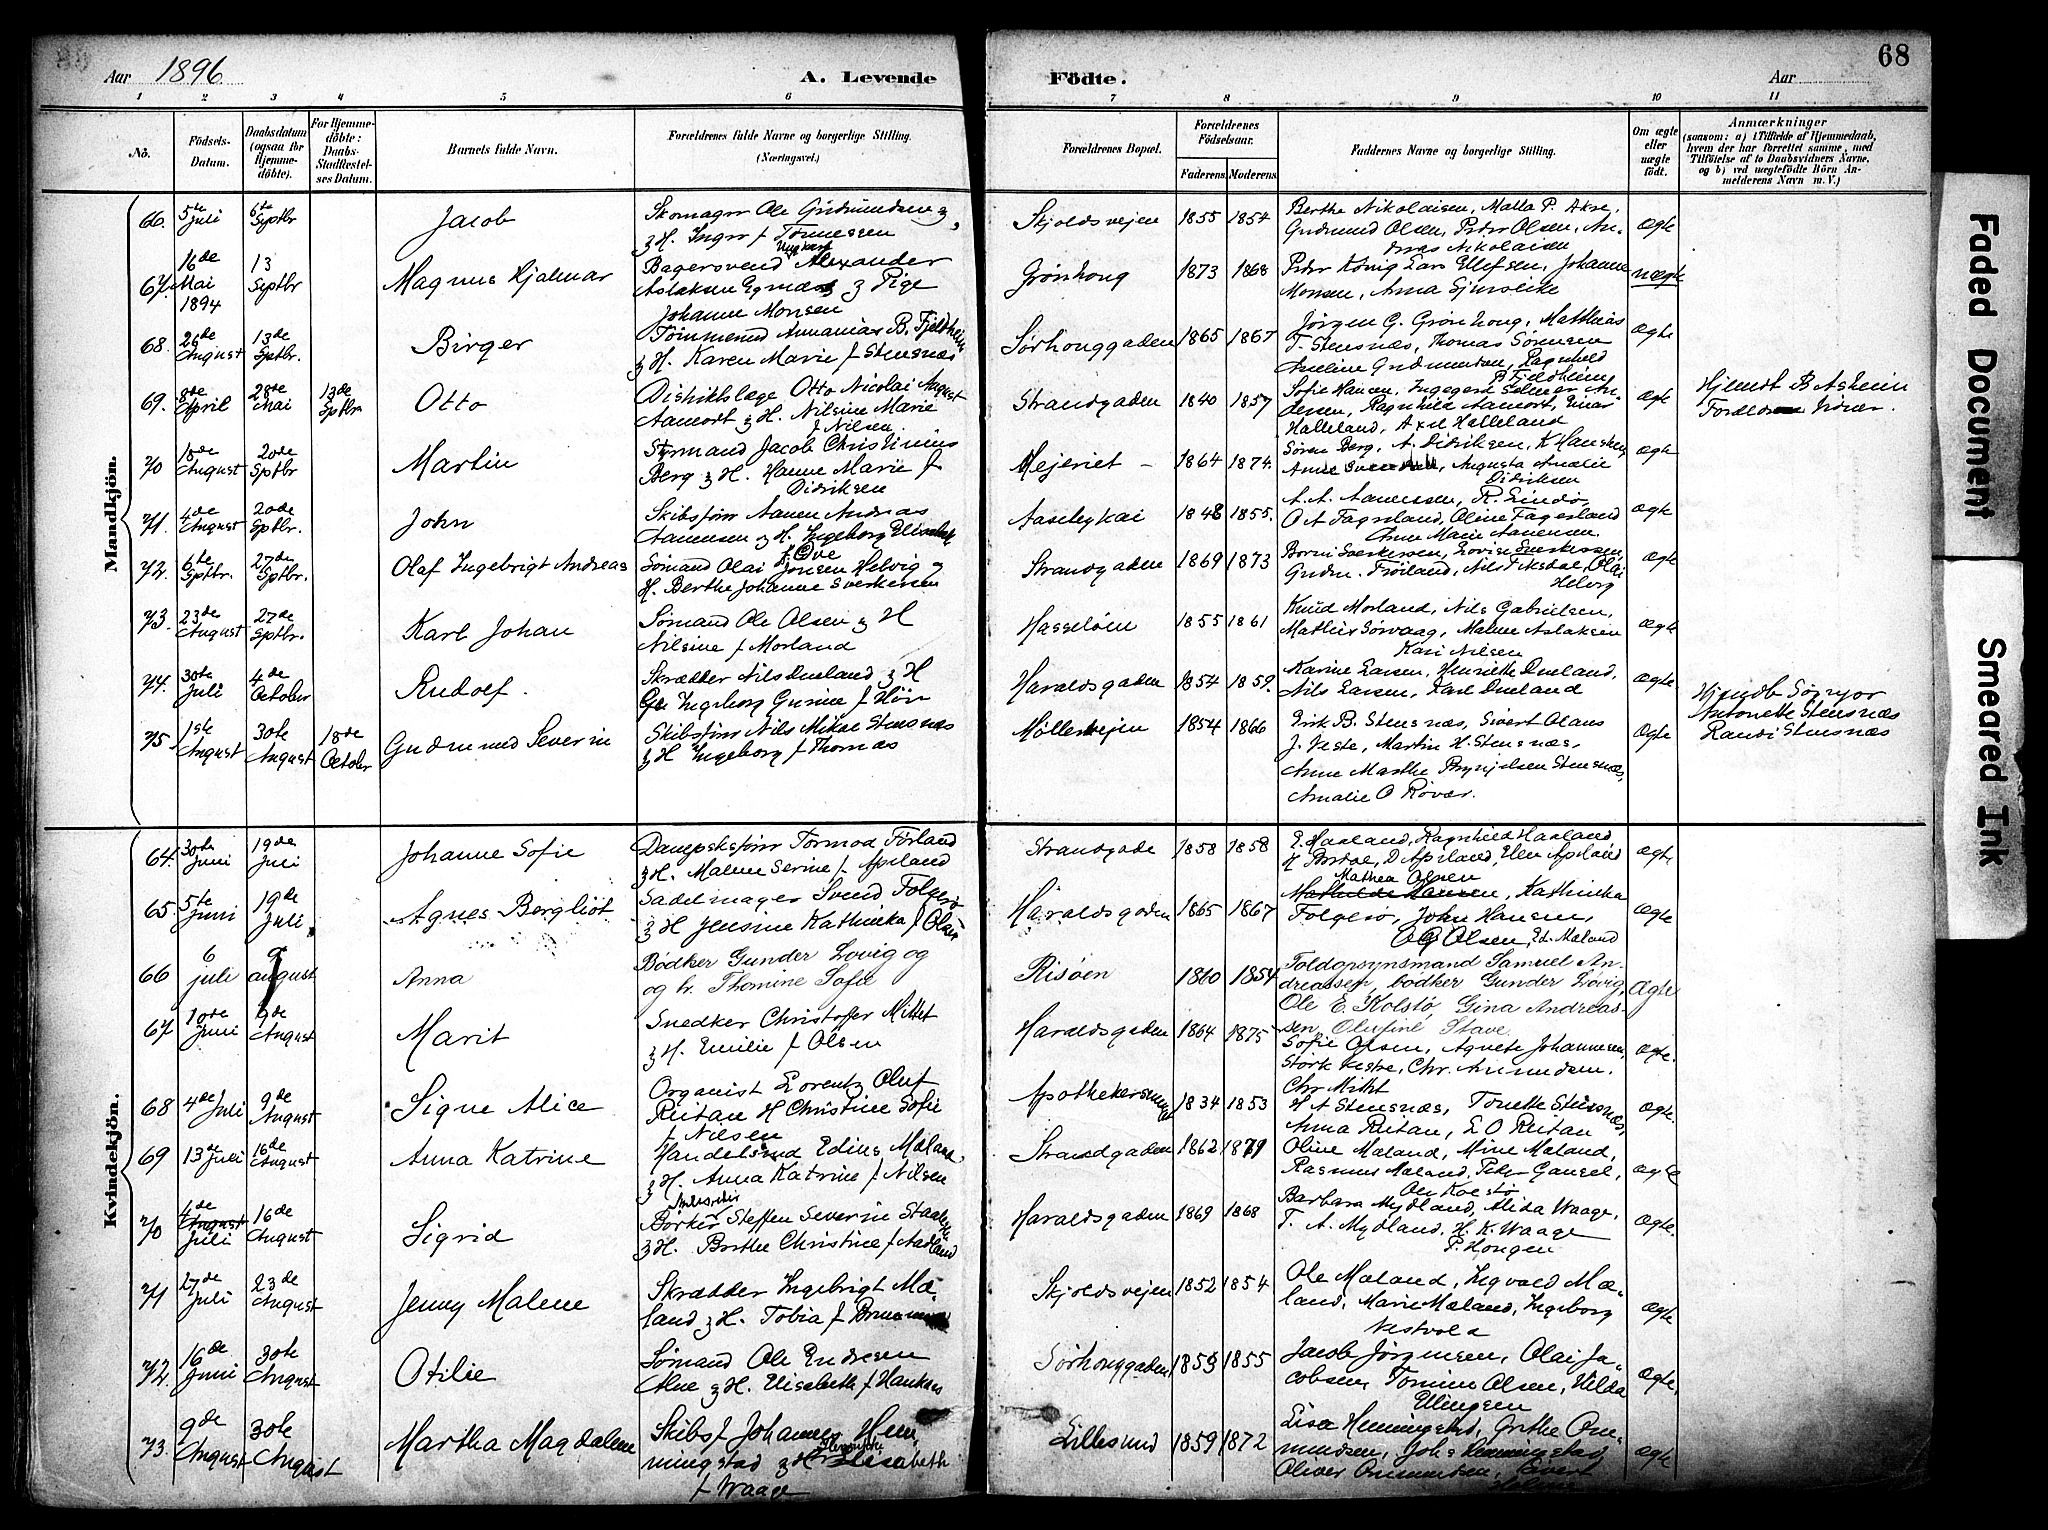 68
Aar 1896
A. Levende Födte.
Aar
1 2 3 4 5 6 7 8 9 10 11
No.
Födsels-Datum.
Daabsdatum (ogsaa for Hjemmedöbte).
For Hjemmedöbte: Daabs-Stadfæstelses Datum.
Barnets fulde Navn.
Forældrenes fulde Navne og borgerlige Stilling. (Næringsvei.)
Forældrenes Bopæl.
Forældrenes Födselsaar.
Faderens. Moderens.
Faddernes Navne og borgerlige Stilling.
Om ægte eller uægte födt.
Anmærkninger
(saasom: a) i Tilfælde af Hjemmedaab, hvem der har forrettet samme, med Tilföielse af to Daabsvidners Navne, og b) ved uægtefödte Börn Anmelderens Navn m. V.)
Mandkjön.
66. 5te Juli 6te Septbr Jacob
Skomager Ole Gudmundsen &
& H. Inger f Tønnessen
Skjoldsvejen 1855 1854
Berthe Nikolaisen, Malla P. Akre,
Gudmund Olsen, Peder Olsen, An-
dreas Nikolaisen
Ægte
67. 16de Mai 1894 13 Septbr Magnus Hjalmar
Ungkarl
Bagersvend Alexander
Aslaksen Egenæs & Pige
Johanne Monsen
Grønhoug 1873 1868
Peder König Lars Ellefsen, Johanne
Monsen, Anna
uægte
68. 26de August 13de Septbr. Birger
Tømmermand Annanias B. Fjeldheim
& H. Karen Marie f Stensnæs
Sørhouggaden 1865 1867
Jørgen G. Grønhoug, Matthias
T. Stensnæs, Thomas Sørensen
Gudmundsen, Ragnhild
B Fjeldheim
Ægte
69. 8de April 28de Mai 13de Septbr Otto
Distriktslæge Otto Nicolai August
Aamodt & H. Nilsine Marie
f Nilsen
Strandgaden 1840 1857
Sofie Hansen, Ingeqerd Selmer An-
dersen, Ragnhild Aamodt, Einar
Halleland, Axel Halleland
Ægte
Hjemdt B Asheim
Forældrene Vidner.
70 18de August 20de Septbr Martin
Styrmand Jacob Christinius
Berg & H. Hanne Marie f
Didriksen
Mejeriet - 1864 1874.
Søren Berg, A. Didriksen, K Hansken
Augusta Amalie
Didriksen
Ægte
71. 4de August 20de Septbr. John
Skibsfører Aanen Andreas
Aanensen & H. Ingeborg Elisabeth
f Ove
Aasebykai 1848 1855.
A. A. Aanensen, R. Lindø,
O A Fagerland, Oline Fagerland
Anne Marie Aanensen.
Ægte
72. 6te Septbr. 27de Septbr. Olaf Ingebrigt Andreas
Sømand Olai Jonsen Helvig &
H. Berthe Johanne Sverkesen
Strandgaden 1869 1873
Sverkessen, Lovise Sverkessen,
Gudm. Frøiland, Nils Fiksdal, Olai
Helvig
Ægte
73. 23de August 27de Septbr. Karl Johan
Sømand Ole Olsen & H
Nilsine f Morland
Hasseløen 1855 1861
Knud Morland, Nils Gabrielsen,
Mathias Sørvaag, Malene Aslaksen
Kari Nilsen
Ægte
74. 30te Juli 4de October Rudolf.
Skrædder Nils Dueland & H
Ingeborg Gurine f Høie
Haraldsgaden 1854 1859.
Karine Larsen, Henriette Dueland,
Nils Larsen, Karl Dueland
Ægte
75. 1ste August 30te August 18de Octobr Gudmund Severin
Skibsfører Nils Mikal Stensnæs
& H Ingeborg f Thomas
Møllervejen 1854 1866
Erik B. Stensnæs, Sivert Olaus
J. Veste, Martin H. Stensnæs,
Anne Marthe Brynjelsen Stensnæs,
Amalie O Røvær.
Ægte
Hjemdt Søgnjor
Antonette Stensnæs
Randi Stensnæs
Kvindekjön.
64. 30te Juni 19de Juli Johanne Sofie
Dampskfører Tormod Førland
& H. Malene Serine f. Apeland
Strandgade 1858 1858
P. Haaland, Ragnhild Haaland
D Apeland, Elen Apeland
Ægte
65. 5te Juni 19de Juli Agnes Bergliot
Sadelmager Svend Folgerø
& H Jensine Kathinka f Olsen
Haraldsgaden 1865 1867
Mathea Olsen
Mathilde Hansen, Kathinka
Folgerø, John Hansen,
O G Olsen, Ed. Mæland
Ægte
66 6 juli 9 august Anna
Bødker Gunder Lovig og
og h. Thomine Sofie
Risøen 1860 1854
Toldopsynsmand Samuel An-
dreassen, bødker Gunder Lovig,
Ole E. Kolstø, Gina Andreas-
sen, Olufine Stave
Ægte
67 10de Juni 9de August Marit
Snedker Christoffer Mittet
& H. Emilie f Olsen
Haraldsgaden 1864 1875
Sofie Olsen, Agnete Johannesen,
Størk Veste, Chr. Amundsen.
Chr Mittet
Ægte.
68 4de Juli 9de August Signe Alice
Organist Lorentz Oluf
Reitan H Christine Sofie
f Nilsen
1834 1853
H A Stensnæs, Tonette Stensnæs,
Anna Reitan, L O Reitan
Ægte.
69 13de Juli 16de August Anna Katrine
Handelsmd Edius Mæland,
& H. Anna Katrine f Nilsen
Strandgaden 1862 1871
Oline Mæland, Mine Mæland,
Rasmus Mæland, Peder Gausel,
Ole Kolstø
Ægte
70 4de August Juli 16de August Sigrid
Bødker Steffen Severin
& H. Berthe Christine f Aadland
Haraldsgaden 1869 1868
Barbara Mydland, Alida Waage,
T. A. Mydland, H. K. Waage
P. Hougen
Ægte.
71 27de Juli 23de August Jenny Malene
Skrædder Ingebrigt Mæ-
land & H. Tobia f
Skjoldsvejen 1852 1854
Ole Mæland, Ingvald Mæ-
land, Marie Mæland, Ingeborg
Vestvold
Ægte
72. 16de Juni 30te August Otilie
Sømand Ole Endresen
Alne & H. Elisabeth f Haukaas
Sørhouggaden 1859 1855
Jacob Jørgensen, Olai Ja-
cobsen, Tomine Olsen, Hilda
Ellingsen
Ægte
73. 9de August 30te August Martha Magdalene
Skibsf Johannes Hem-
mingstad & H Elisabeth
f Waage
Lillesund 1859 1872
Lisa Hemmingstad, Grethe Om-
mundsen, Johs Hemmingstad
Oliver Ommundsen, Sivert
Ægte
Faded Document
Smeared Ink